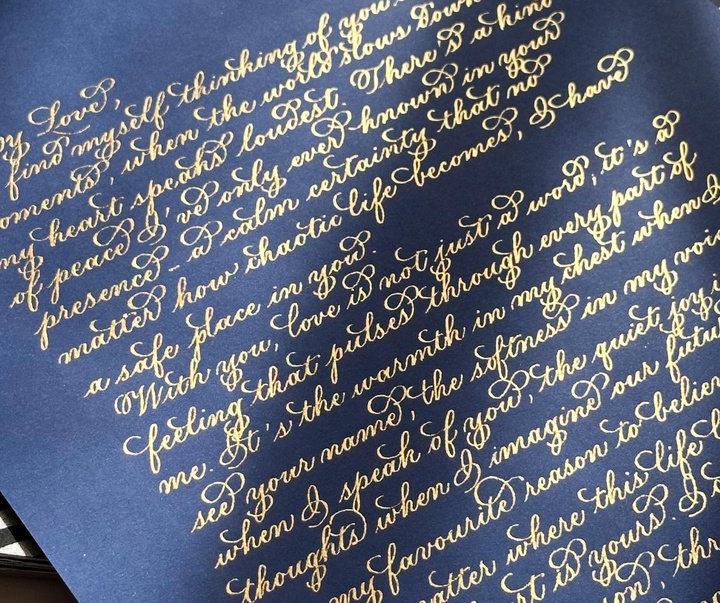 y Love,
find myself thinking of you
oments, when the world slows down
my heart speaks loudest. There's a kind
of peace I've only ever known in your
presence - a calm certainty that no
matter how chaotic life becomes, I have
a safe place in you.
With you, love is not just a word, it's a
feeling that pulses through every part of
me. It's the warmth in my chest when I
see your name, the softness in my voi
when I speak of you, the quiet joy i
thoughts when I imagine our futu
my favourite reason to believ
atter where this life
rt is yours. I
on, thr